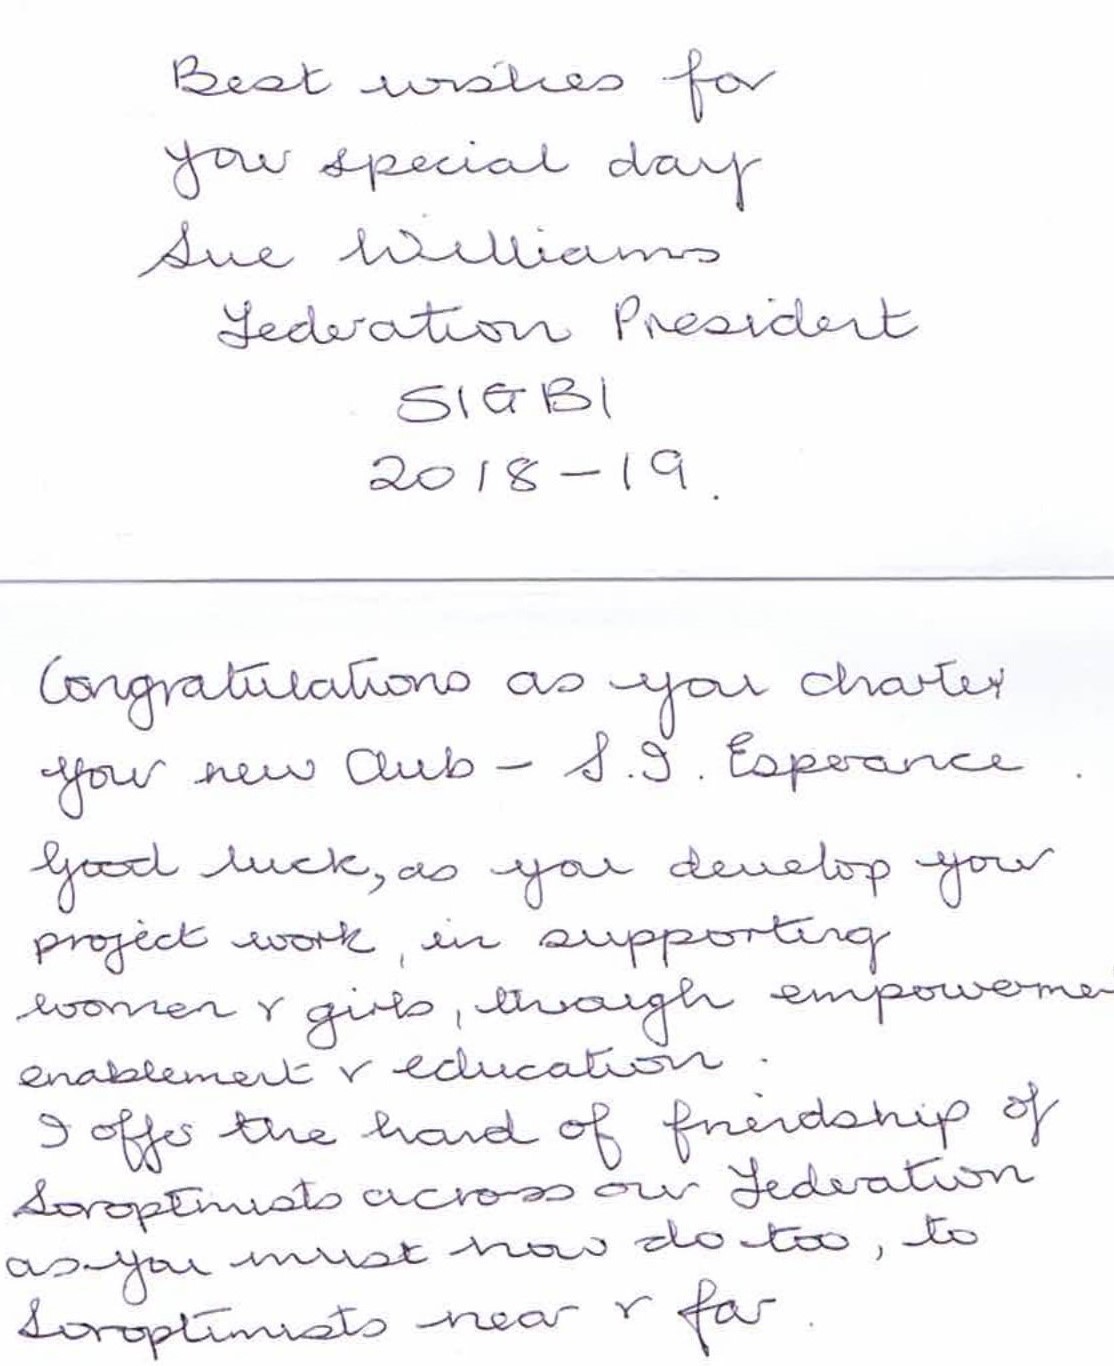 Best wishes for
your special day
Sue Williams
Federation President
SIGBI
2018-19.
Congratulations as you charter
your new Club - S.I. Esperance.
Good luck, as you develop your
project work, in supporting
women & girls, through empowerme
enablement & education.
I offer the hand of friendship of
Soroptimists across our Federation
as you must now do too, to
Soroptimists near & far.